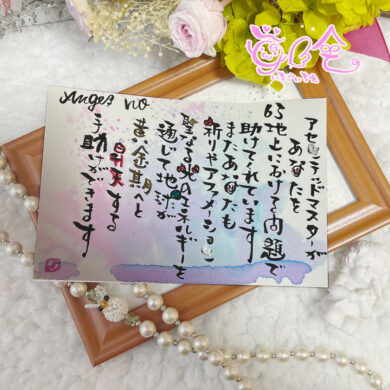 Anges no
65
アセンデッドマスターが
あなたを
地上における問題で
助けてくれています
またあなたも
祈りやアファメーション
聖なる光のエネルギーを
通じて地球が
黄金期へと
昇天する
手助けができます